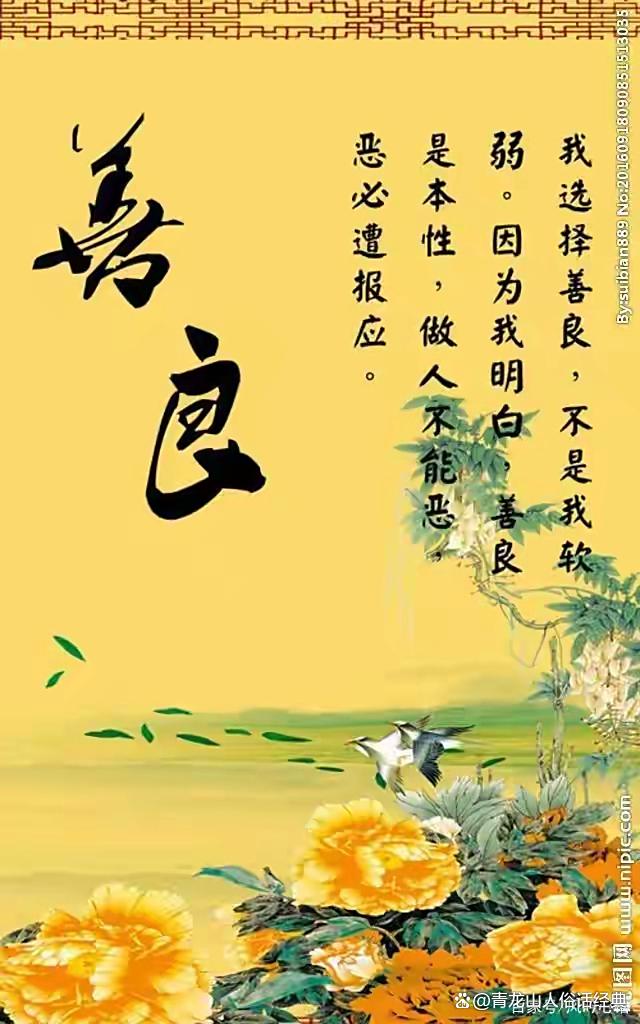 善良
我选择善良，不是我软
弱。因为我明白，善良
是本性，做人不能恶，
恶必遭报应。
By:suibian889 No:20160918090851513035
www.nipic.com
图网
@青龙山人俗话经典
百家号